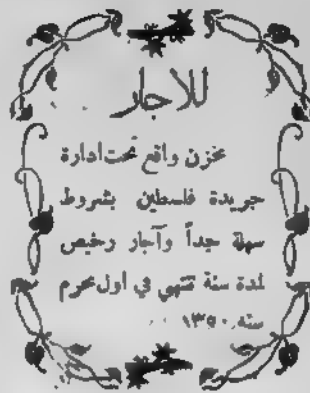 للاجار
مخزن واقع تحت ادارة
جريدة فلسطين بشروط
سهلة جداً وآجار رخيص
لمدة سنة تنتهي في اول محرم
سنة ١٣٥٠